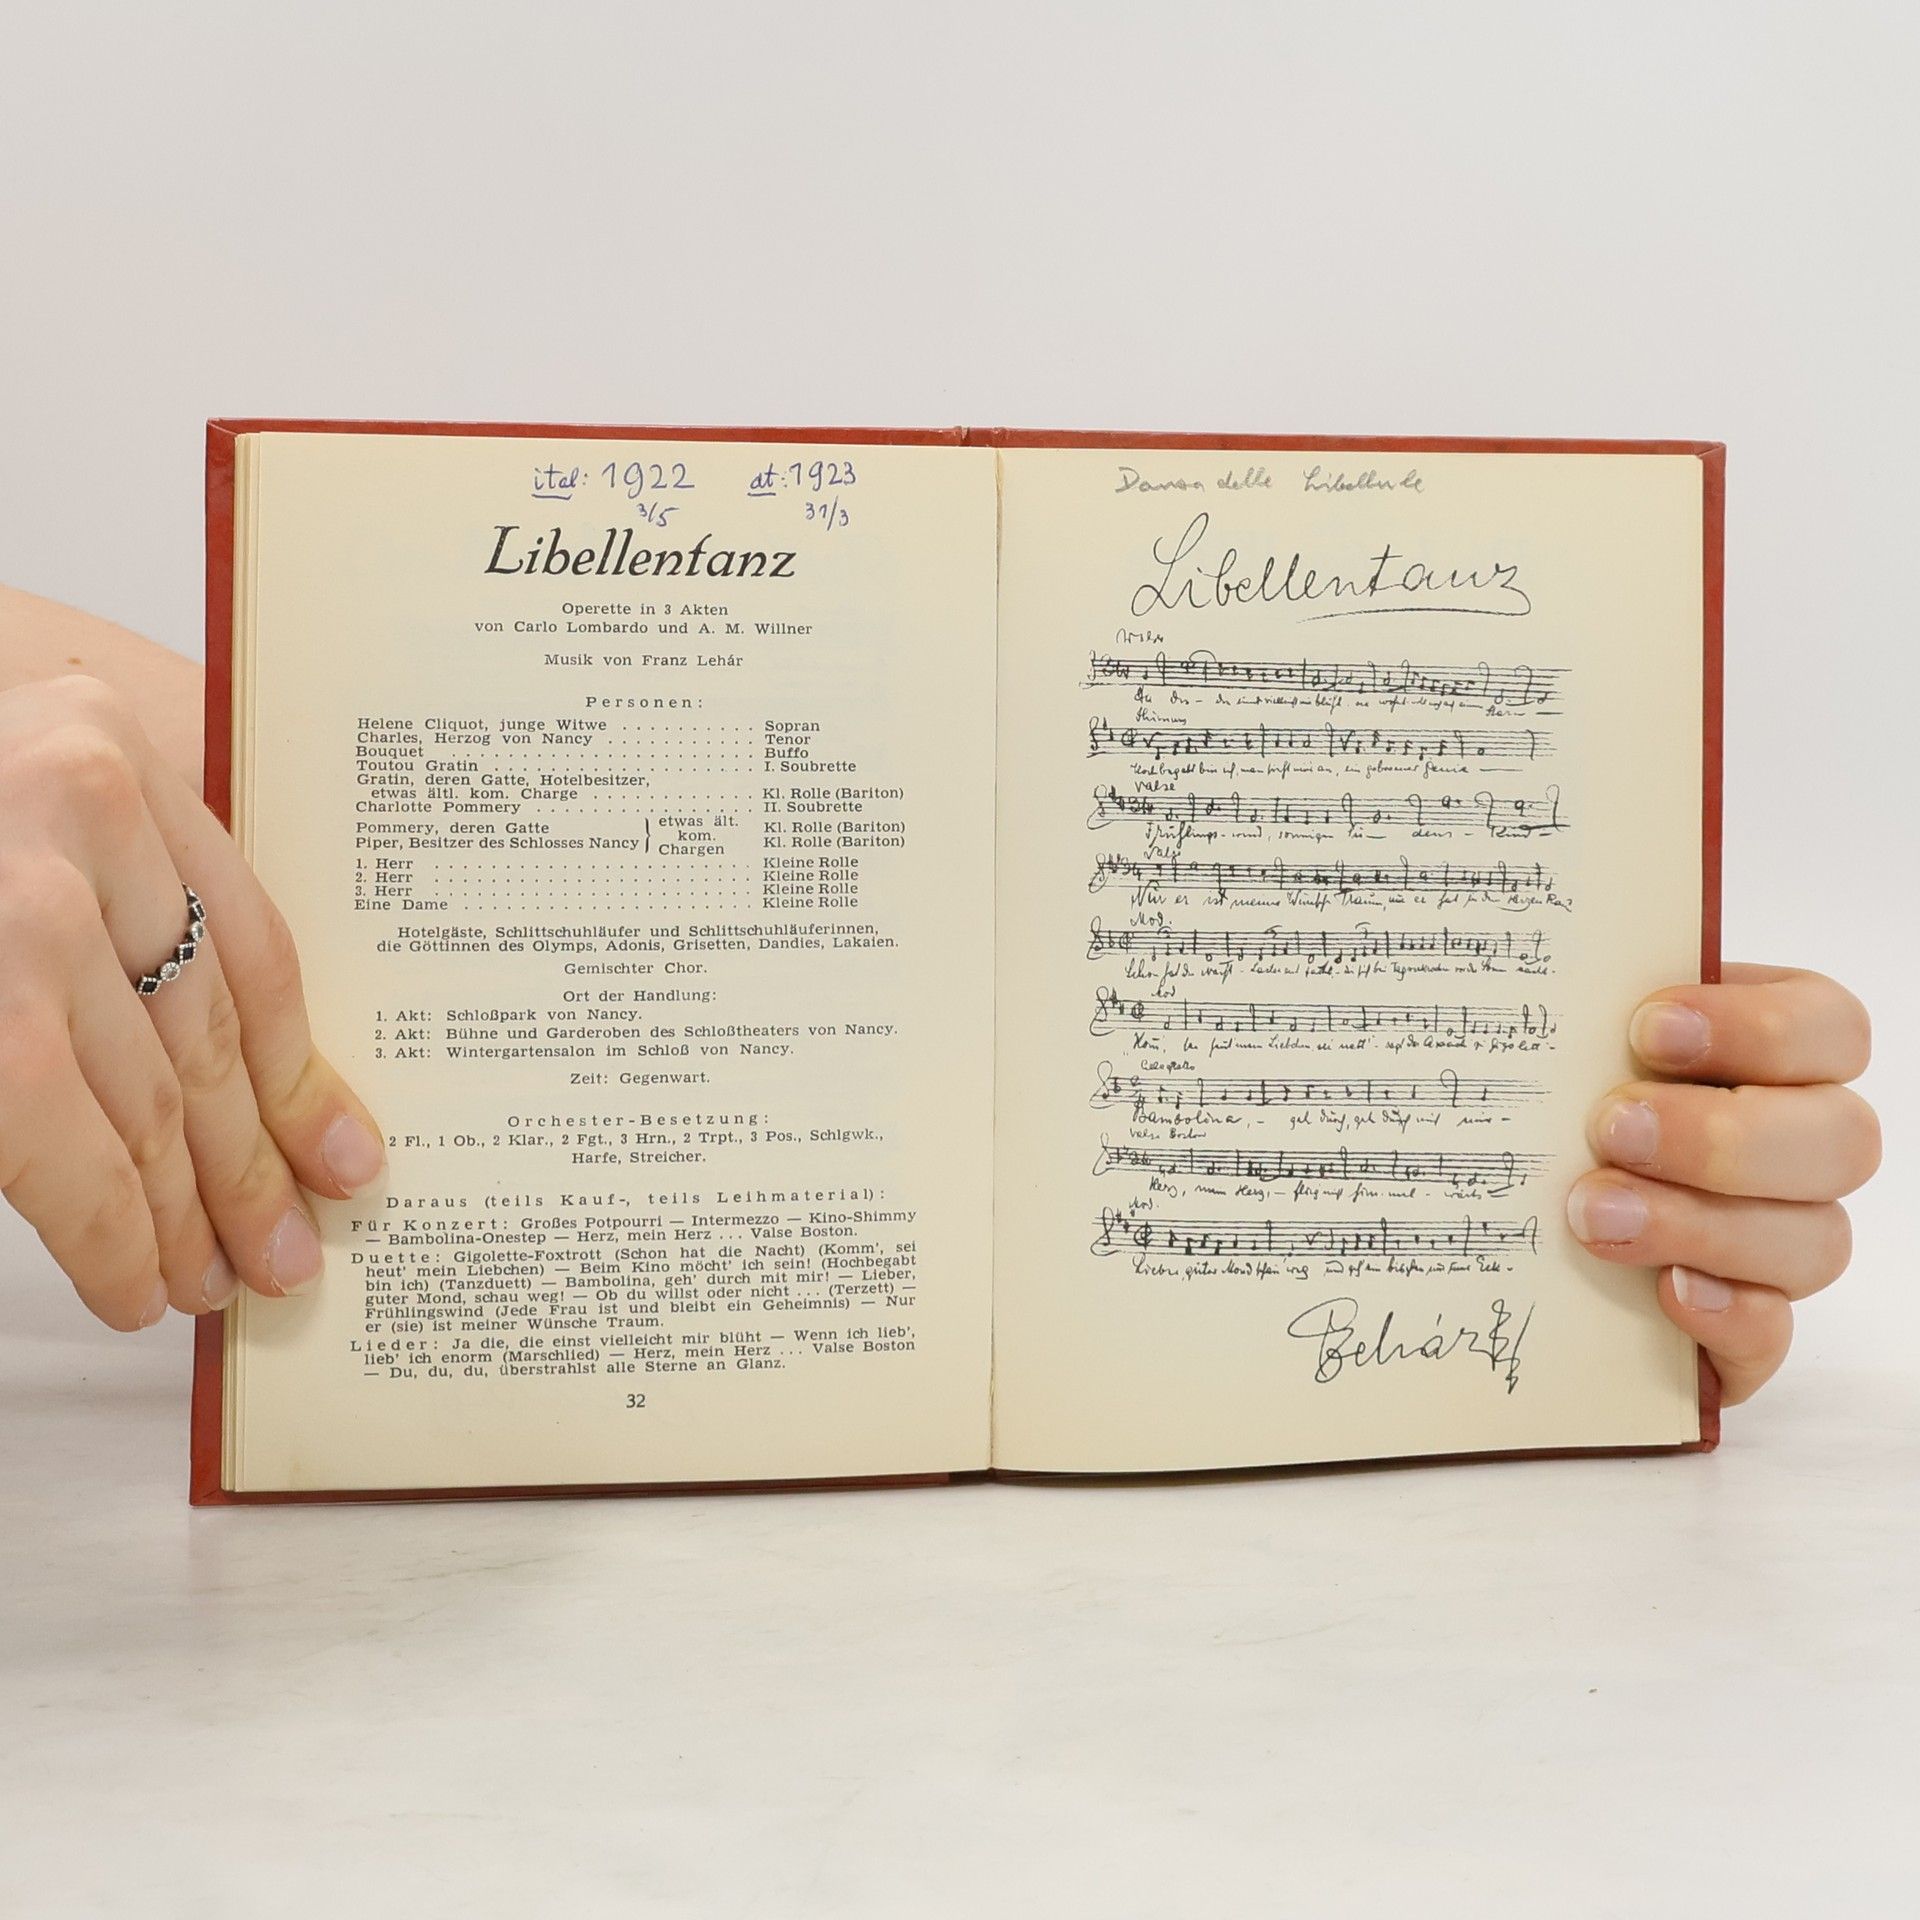 ital: 1922 dt: 1923
3/5 31/3
Libellentanz
Operette in 3 Akten
von Carlo Lombardo und A. M. Willner
Musik von Franz Lehár
Personen:
Helene Cliquot, junge Witwe . . . . . . . . . . Sopran
Charles, Herzog von Nancy . . . . . . . . . . . Tenor
Bouquet . . . . . . . . . . . . . . . . . . . . . . Buffo
Toutou Gratin . . . . . . . . . . . . . . . . . . . I. Soubrette
Gratin, deren Gatte, Hotelbesitzer,
etwas ältl. kom. Charge . . . . . . . . . . . . Kl. Rolle (Bariton)
Charlotte Pommery . . . . . . . . . . . . . . . . II. Soubrette
Pommery, deren Gatte } etwas ält. Kl. Rolle (Bariton)
kom.
Piper, Besitzer des Schlosses Nancy } Chargen Kl. Rolle (Bariton)
1. Herr . . . . . . . . . . . . . . . . . . . . . . . Kleine Rolle
2. Herr . . . . . . . . . . . . . . . . . . . . . . . Kleine Rolle
3. Herr . . . . . . . . . . . . . . . . . . . . . . . Kleine Rolle
Eine Dame . . . . . . . . . . . . . . . . . . . . . Kleine Rolle
Hotelgäste, Schlittschuhläufer und Schlittschuhläuferinnen,
die Göttinnen des Olymps, Adonis, Grisetten, Dandies, Lakaien.
Gemischter Chor.
Ort der Handlung:
1. Akt: Schloßpark von Nancy.
2. Akt: Bühne und Garderoben des Schloßtheaters von Nancy.
3. Akt: Wintergartensalon im Schloß von Nancy.
Zeit: Gegenwart.
Orchester-Besetzung:
2 Fl., 1 Ob., 2 Klar., 2 Fgt., 3 Hrn., 2 Trpt., 3 Pos., Schlgwk.,
Harfe, Streicher.
Daraus (teils Kauf-, teils Leihmaterial):
Für Konzert: Großes Potpourri — Intermezzo — Kino-Shimmy
— Bambolina-Onestep — Herz, mein Herz ... Valse Boston.
Duette: Gigolette-Foxtrott (Schon hat die Nacht) (Komm', sei
heut' mein Liebchen) — Beim Kino möcht' ich sein! (Hochbegabt
bin ich) (Tanzduett) — Bambolina, geh' durch mit mir! — Lieber,
guter Mond, schau weg! — Ob du willst oder nicht ... (Terzett) —
Frühlingswind (Jede Frau ist und bleibt ein Geheimnis) — Nur
er (sie) ist meiner Wünsche Traum.
Lieder: Ja die, die einst vielleicht mir blüht — Wenn ich lieb',
lieb' ich enorm (Marschlied) — Herz, mein Herz ... Valse Boston
— Du, du, du, überstrahlst alle Sterne an Glanz.
32
Danza delle Libellule
Libellentanz
Shimmy
Hochbegabt bin ich, man sieht mir's an, ein geborener Genie
Valse
Frühlings-wind, sonnigen Sü- dens - Kind -
Valse
Nur er ist meiner Wünsche Traum, nur er hat in dem Herzen Raum
Mod.
Mod
Bambolina, - geh durch, geh durch mit mir -
Valse Boston
Herz, mein Herz, - flieg mit himmel - wärts
Mod.
Lieber, guter Mond schau weg
Lehár